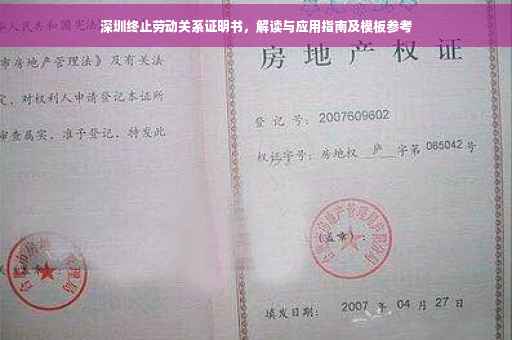 深圳终止劳动关系证明书，解读与应用指南及模板参考
华人民共和国宪法
市房地产管理法》及有关法
定，对权利人申请登记本证所
审查属实，准予登记，特发此
房地产权证
登记号：2007609602
权证字号：房地权 庐 字第 065042 号
(盖章)：
填发日期：2007 年 04 月 27 日